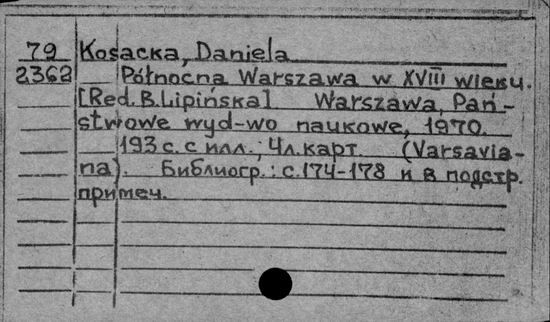 79 Kosacka, Daniela
2362 Północna Warszawa w XVIII wieku.
[Red. B. Lipińska] Warszawa, Pań-
stwowe wyd-wo naukowe, 1970.
193 с. с илл.; 4 л. карт. (Varsavia-
na). Библиогр.: с. 174-178 и в подстр.
примеч.